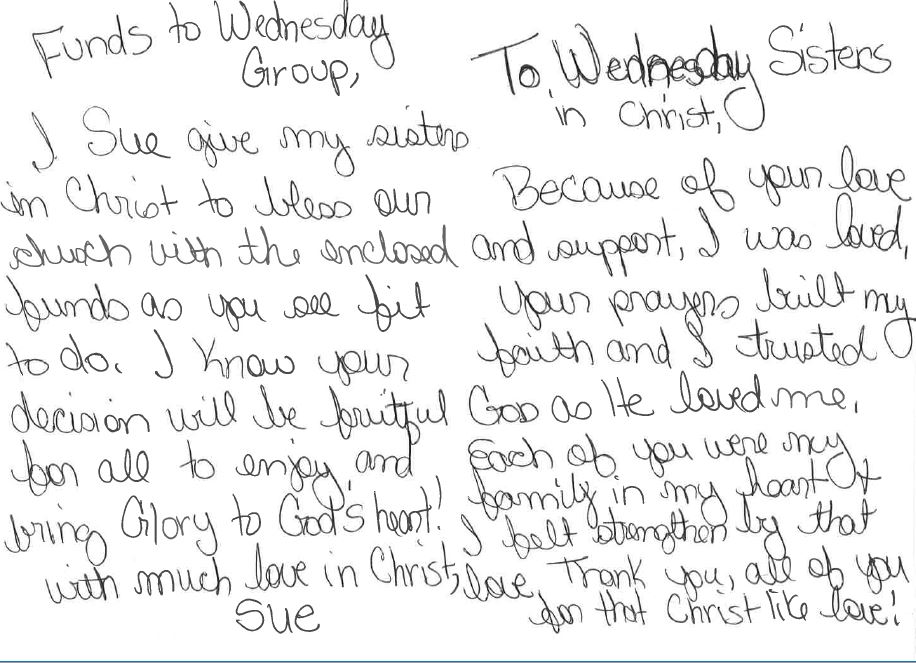 Funds to Wednesday
Group,
I Sue give my sisters
in Christ to bless our
church with the enclosed
funds as you see fit
to do. I know your
decision will be fruitful
for all to enjoy and
bring Glory to God's heart!
with much love in Christ,
Sue
To Wednesday Sisters
in Christ,
Because of your love
and support, I was loved,
Your prayers built my
faith and I trusted
God as He loved me.
Each of you were my
family in my heart &
I felt strengthen by that
love. Thank you, all of you
for that Christ like love!